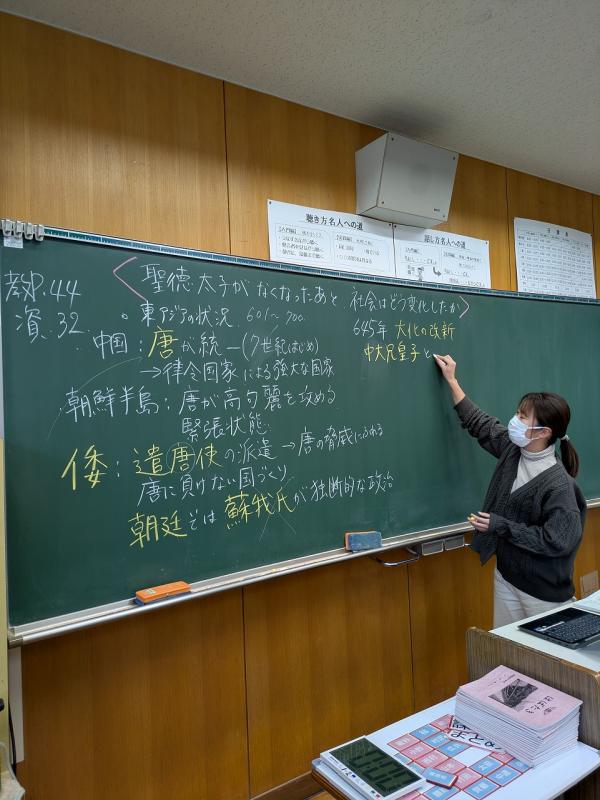 教P.44
資.32
〈聖徳太子がなくなったあと 社会はどう変化したか〉
。東アジアの状況 601〜700
中国：唐が統一(7世紀はじめ)
→律令国家による強大な国家
朝鮮半島：唐が高句麗を攻める
緊張状態
倭：遣唐使の派遣→唐の脅威にふれる
唐に負けない国づくり
朝廷では蘇我氏が独断的な政治
645年 大化の改新
中大兄皇子と
聴き方名人への道
話し方名人への道